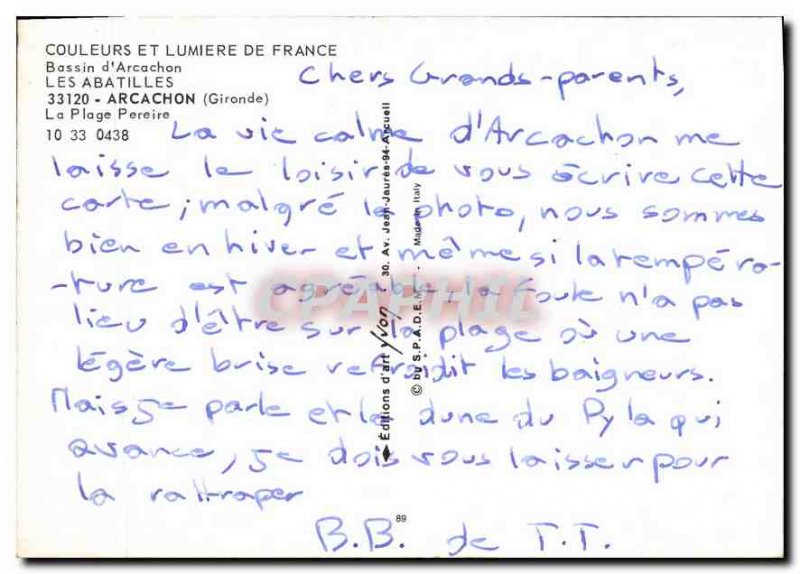 COULEURS ET LUMIERE DE FRANCE
Bassin d'Arcachon
LES ABATILLES
33120 - ARCACHON (Gironde)
La Plage Pereire
10 33 0438
Chers Grands-parents,
La vie calme d'Arcachon me
laisse le loisir de vous écrire cette
carte ; malgré la photo, nous sommes
bien en hiver et même si la tempéra-
-ture est agréable, la foule n'a pas
lieu d'être sur la plage où une
légère brise refroidit les baigneurs.
Mais je parle et la dune du Pyla qui
avance, je dois vous laisser pour
la rattraper
B.B. de T.T.
Éditions d'art Yvon - 30. Av. Jean-Jaurès-94-Arcueil
© by S.P.A.D.E.M. - Made in Italy
89
CPAPHIL